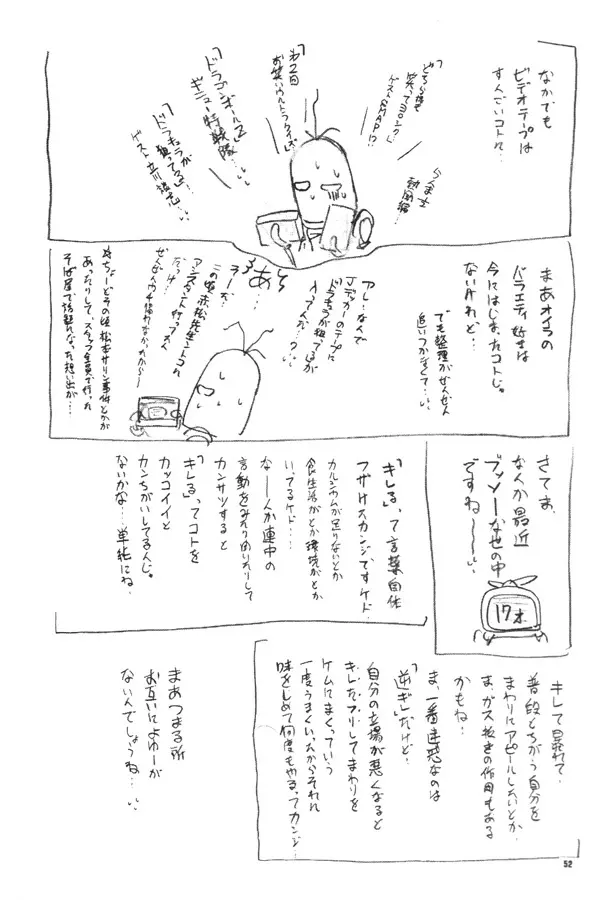 なかでも
ビデオテープは
すんごいコトに…
らんま½
動風編…
どちら様も
笑ってヨロシク
ゲストSMAP!?
第2回
お笑いウルトラクイズ
「ドラゴンボールZ」
ギニュー特戦隊…
「ドラキュラが
狙ってる」
まあオイラの
バラエティ好きは
今にはじまったコトじゃ
ないけれど…
でも整理がぜんぜん
追いつかなくて…
アレ…なんで
Jデッカーのテープに
ドラキュラが狙ってるが
入ってんだ…?
あ…
この頃赤松先生んトコに
アシスタント行ってたん
だっけ…
ちょーどその頃松本サリン事件とかが
あったりして、スタッフ全員で行った
そば屋で話題になった想い出が…
さてま、
なんか最近
ブッソーな世の中
ですね〜〜
17才
「キレる」って言葉自体
フザけたカンジですケド、
カルシウムが足りないとか
食生活がとか環境がとか
いってるケド…
な〜んか連中の
言動をみたり聞いたりして
カンサツすると
「キレる」ってコトを
カッコイイと
カンちがいしてるんじゃ
ないかな…単純にね。
キレて暴れて、
普段とちがう自分を
まわりにアピールしたいとか、
まぁガス抜きの作用もある
かもね…
ま、一番迷惑なのは
「逆ギレ」だけど…
自分の立場が悪くなると
キレたフリしてまわりを
ケムにまくっていう
一度うまくいったからそれに
味をしめて何度もやるってカンジ…
まあつまる所
お互いによゆーが
ないんでしょうね…
52